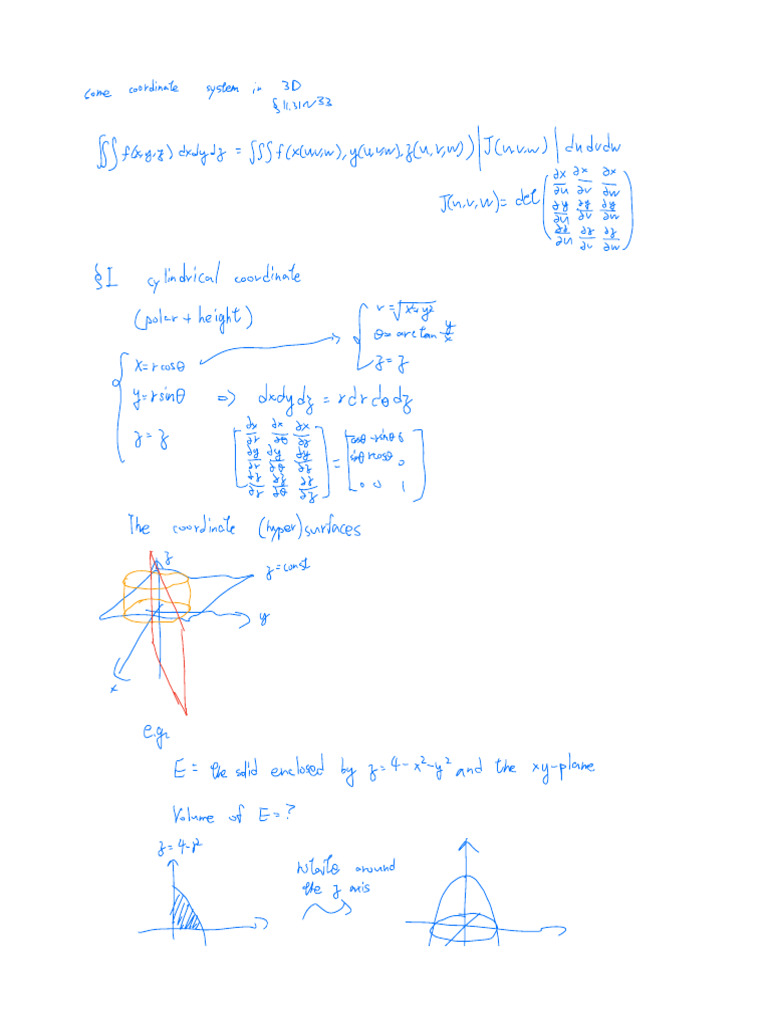 Some coordinate system in 3D
§11.31~33
∭ f(x,y,z) dxdydz = ∭ f(x(u,v,w), y(u,v,w), z(u,v,w)) |J(u,v,w)| du dv dw
J(u,v,w) = det
∂x/∂u ∂x/∂v ∂x/∂w
∂y/∂u ∂y/∂v ∂y/∂w
∂z/∂u ∂z/∂v ∂z/∂w
§I cylindrical coordinate
(polar + height)
r = √x²+y²
θ = arctan y/x
z = z
x = r cosθ
y = r sinθ ⇒ dxdydz = r dr dθ dz
z = z
∂x/∂r ∂x/∂θ ∂x/∂z
∂y/∂r ∂y/∂θ ∂y/∂z
∂z/∂r ∂z/∂θ ∂z/∂z
=
cosθ -rsinθ 0
sinθ rcosθ 0
0 0 1
The coordinate (hyper)surfaces
z
z = const
y
x
e.g.
E = the solid enclosed by z = 4 - x² - y² and the xy-plane
Volume of E = ?
z = 4 - r²
rotate around
the z axis